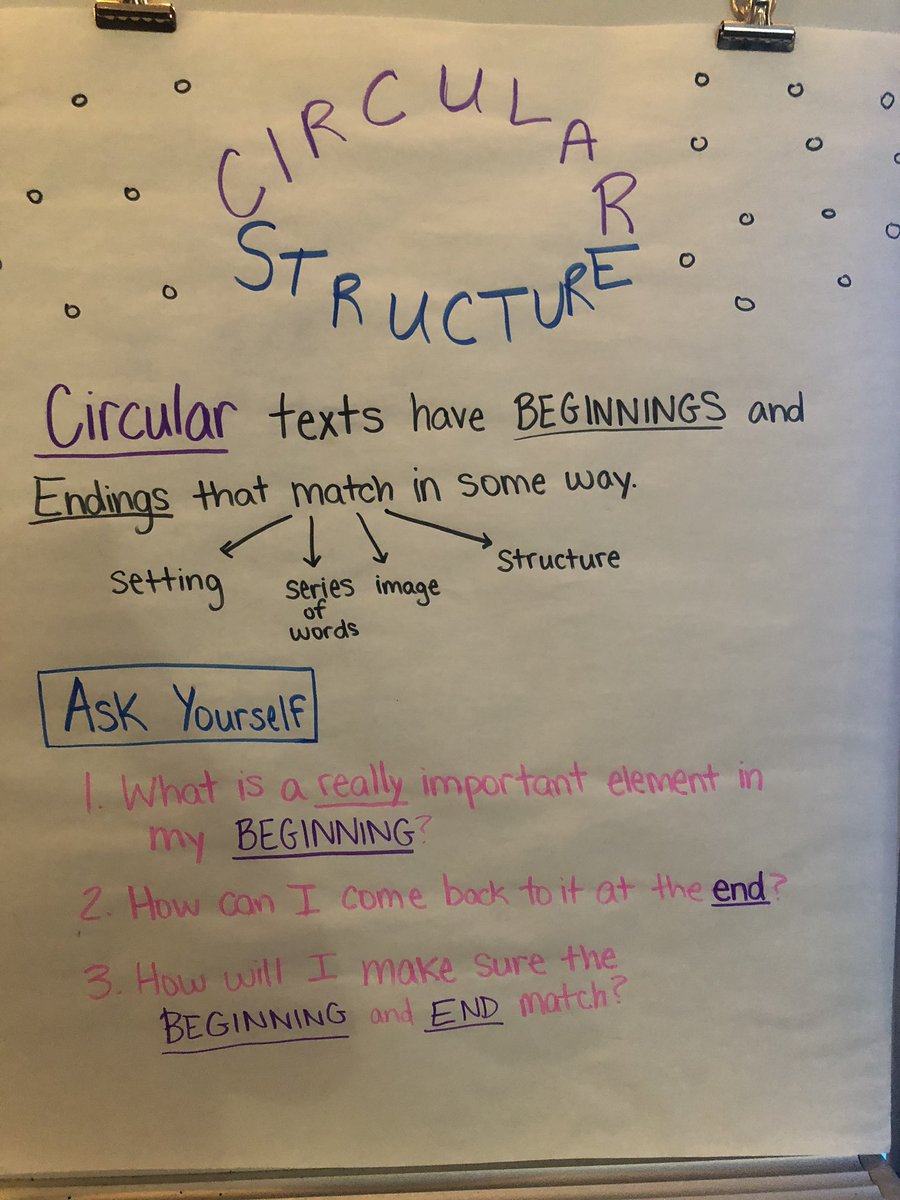 CIRCULAR
STRUCTURE
Circular texts have BEGINNINGS and
Endings that match in some way.
setting
series
of
words
image
structure
Ask Yourself
1. What is a really important element in
my BEGINNING?
2. How can I come back to it at the end?
3. How will I make sure the
BEGINNING and END match?